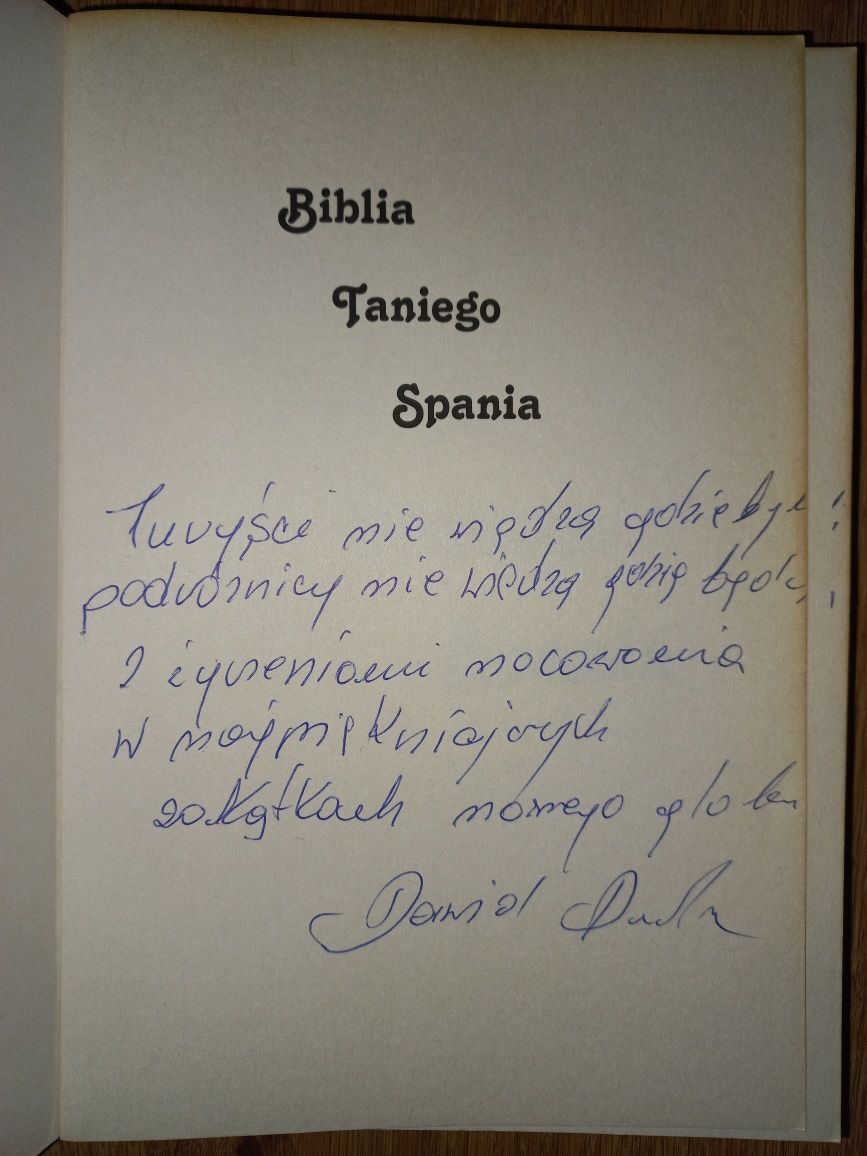 Biblia
Taniego
Spania
Turyści nie wiedzą gdzie byli!
podróżnicy nie wiedzą gdzie będą!
Z życzeniami nocowania
w najpiękniejszych
zakątkach naszego globu
Dawid